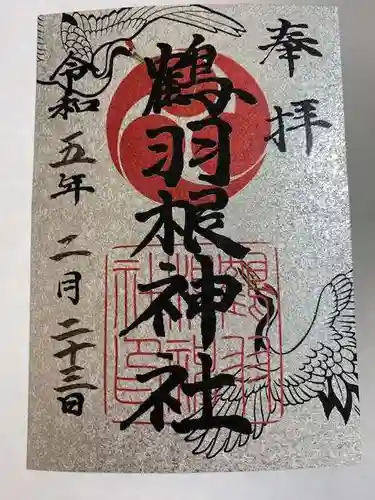 奉拝
鶴羽根神社
令和五年二月二十三日